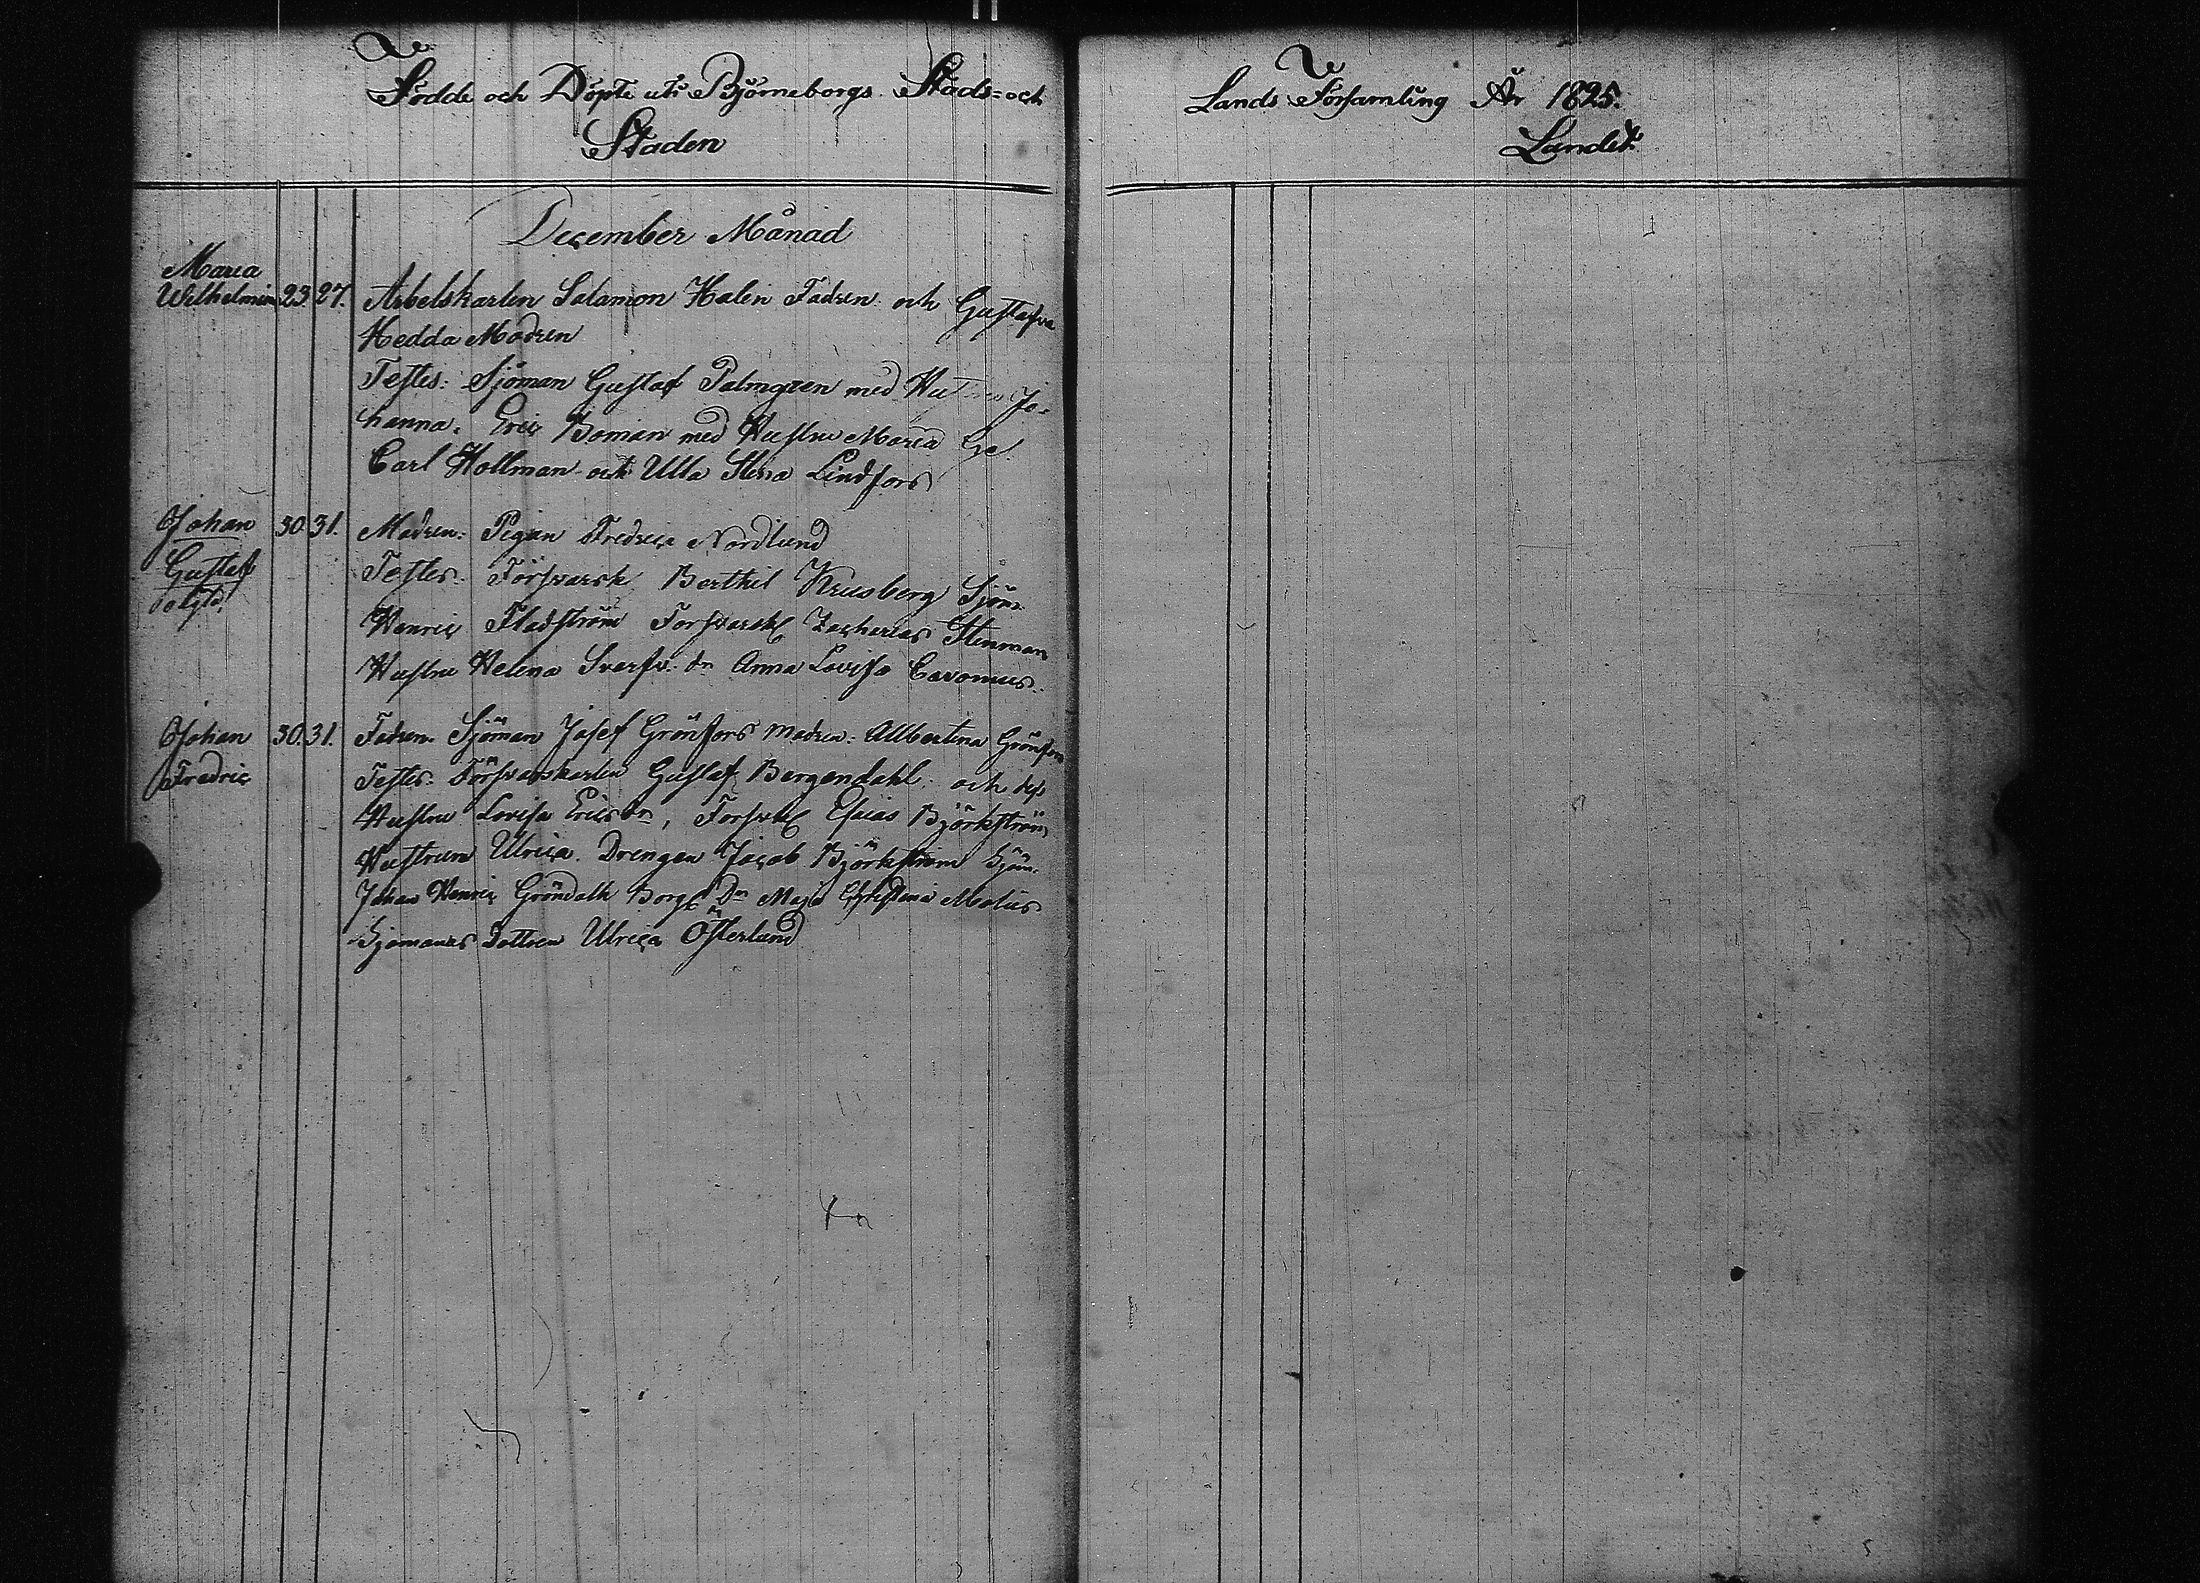 Födde och Döpte uti Björneborgs Stads= och
Staden
December Månad
Maria
Wilhelmina 23 27. Arbetskarlen Salamon Halen Fadren och Gustafva
Hedda Modren
Testes: Sjöman Gustaf Palmgren med Hustru Jo-
hanna. Eric Boman med Hustru Maria
Carl Hollman och Ulla Stina Lindfors
Johan 30 31. Modren: Pigan Fredrica Nordlund
Gustaf
Testes: Försvarsk Berthil Krusberg Sjöm:
Henric Fladström Försvarsk Zacharias Stenman
Hustru Helena Svarfv: dr Anna Lovisa Cavonius
Johan 30 31. Fadren Sjöman Josef Grönfors Modren: Allbertina Grönfors
Fredric
Testes: Försvarskarlen Gustaf Bergendahl och dess
Hustru Lovisa Ericsdr, Försvk Esaias Björkström
Hustrun Ulrica. Drengen Jacob Björkström Sjöm:
Johan Henric Gröndahl Borg Dr Maja Christina Molius
Sjömans Dottren Ulrica Österlund
Lands Församling År 1825.
Landet